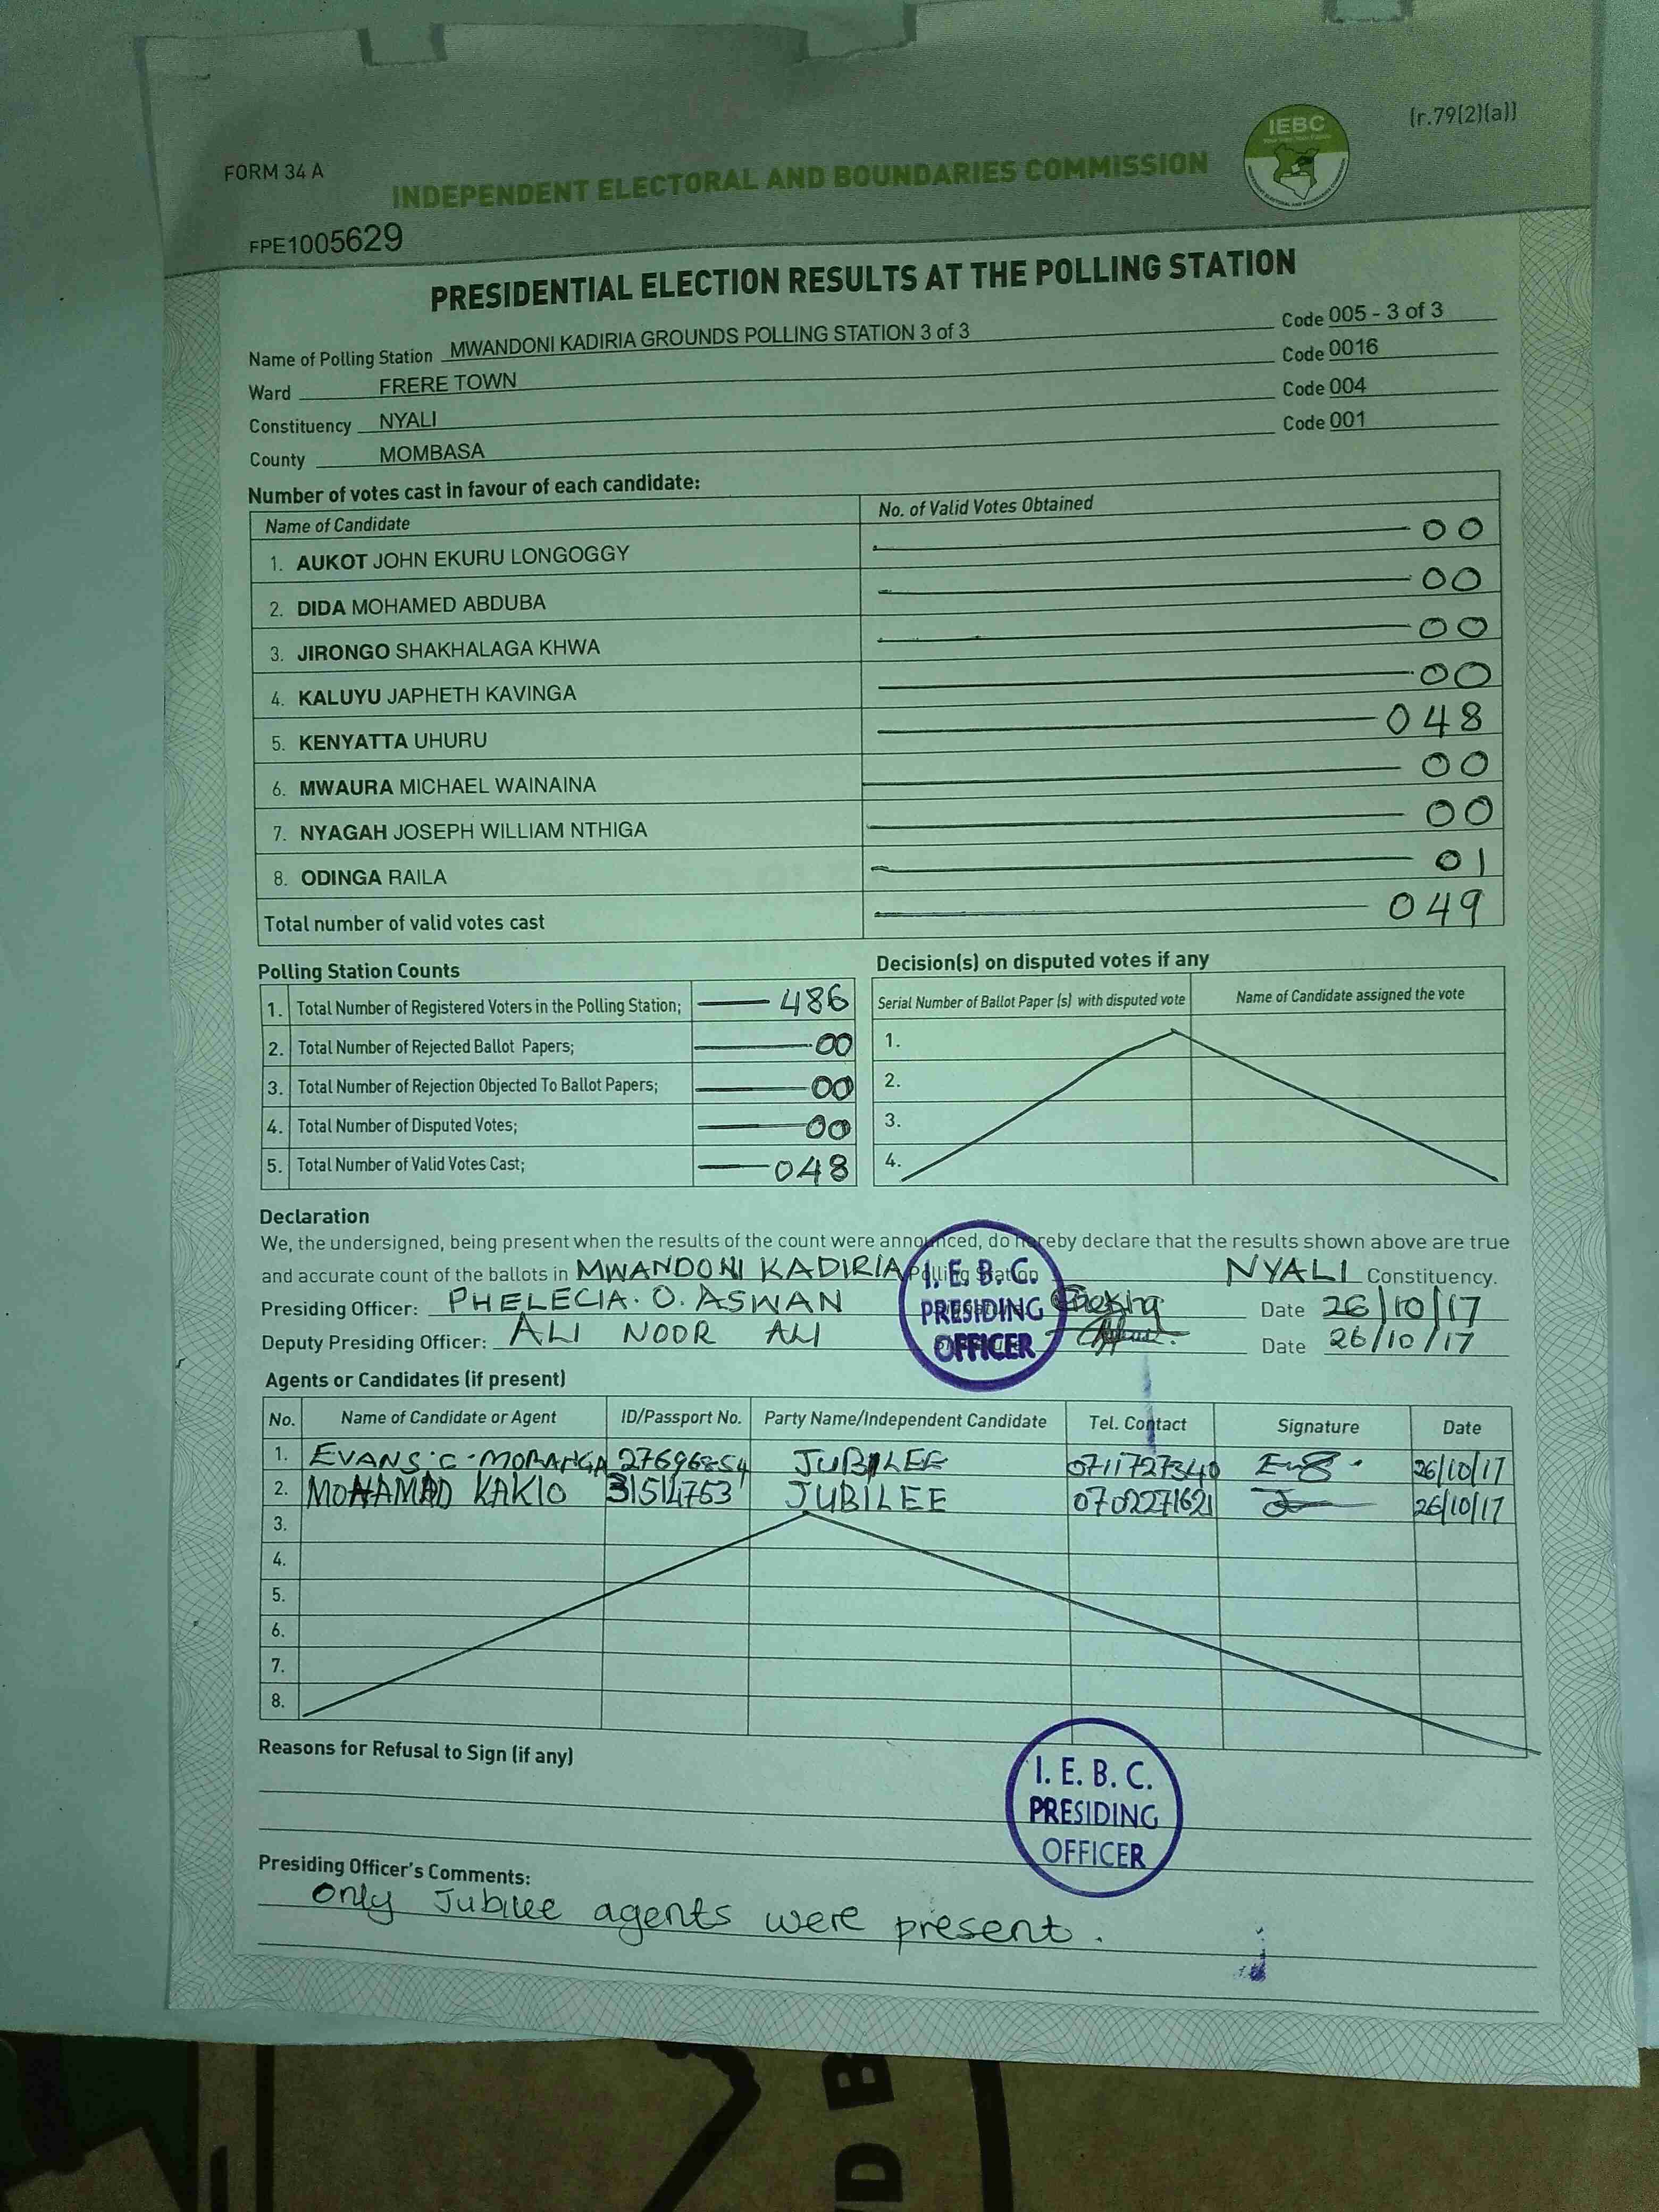 (r.79(2)(a))
IEBC
FORM 34 A
INDEPENDENT ELECTORAL AND BOUNDARIES COMMISSION
FPE1005629
PRESIDENTIAL ELECTION RESULTS AT THE POLLING STATION
Name of Polling Station MWANDONI KADIRIA GROUNDS POLLING STATION 3 of 3 Code 005 - 3 of 3
Ward FRERE TOWN Code 0016
Constituency NYALI Code 004
County MOMBASA Code 001
Number of votes cast in favour of each candidate:
Name of Candidate No. of Valid Votes Obtained
1. AUKOT JOHN EKURU LONGOGGY 00
2. DIDA MOHAMED ABDUBA 00
3. JIRONGO SHAKHALAGA KHWA 00
4. KALUYU JAPHETH KAVINGA 00
5. KENYATTA UHURU 048
6. MWAURA MICHAEL WAINAINA 00
7. NYAGAH JOSEPH WILLIAM NTHIGA 00
8. ODINGA RAILA 01
Total number of valid votes cast 049
Polling Station Counts
1. Total Number of Registered Voters in the Polling Station; 486
2. Total Number of Rejected Ballot Papers; 00
3. Total Number of Rejection Objected To Ballot Papers; 00
4. Total Number of Disputed Votes; 00
5. Total Number of Valid Votes Cast; 048
Decision(s) on disputed votes if any
Serial Number of Ballot Paper (s) with disputed vote Name of Candidate assigned the vote
1.
2.
3.
4.
Declaration
We, the undersigned, being present when the results of the count were announced, do hereby declare that the results shown above are true
and accurate count of the ballots in MWANDONI KADIRIA Polling Station NYALI Constituency.
Presiding Officer: PHELECIA. O. ASWAN Date 26/10/17
Deputy Presiding Officer: ALI NOOR ALI Date 26/10/17
I. E. B. C.
PRESIDING
OFFICER
Agents or Candidates (if present)
No. Name of Candidate or Agent ID/Passport No. Party Name/Independent Candidate Tel. Contact Signature Date
1. EVANS C. MORANGA JUBILEE 0711727340 26/10/17
2. MOHAMAD KAKIO 31514753 JUBILEE 0702271621 26/10/17
3.
4.
5.
6.
7.
8.
Reasons for Refusal to Sign (if any)
I. E. B. C.
PRESIDING
OFFICER
Presiding Officer's Comments:
Only Jubilee agents were present.